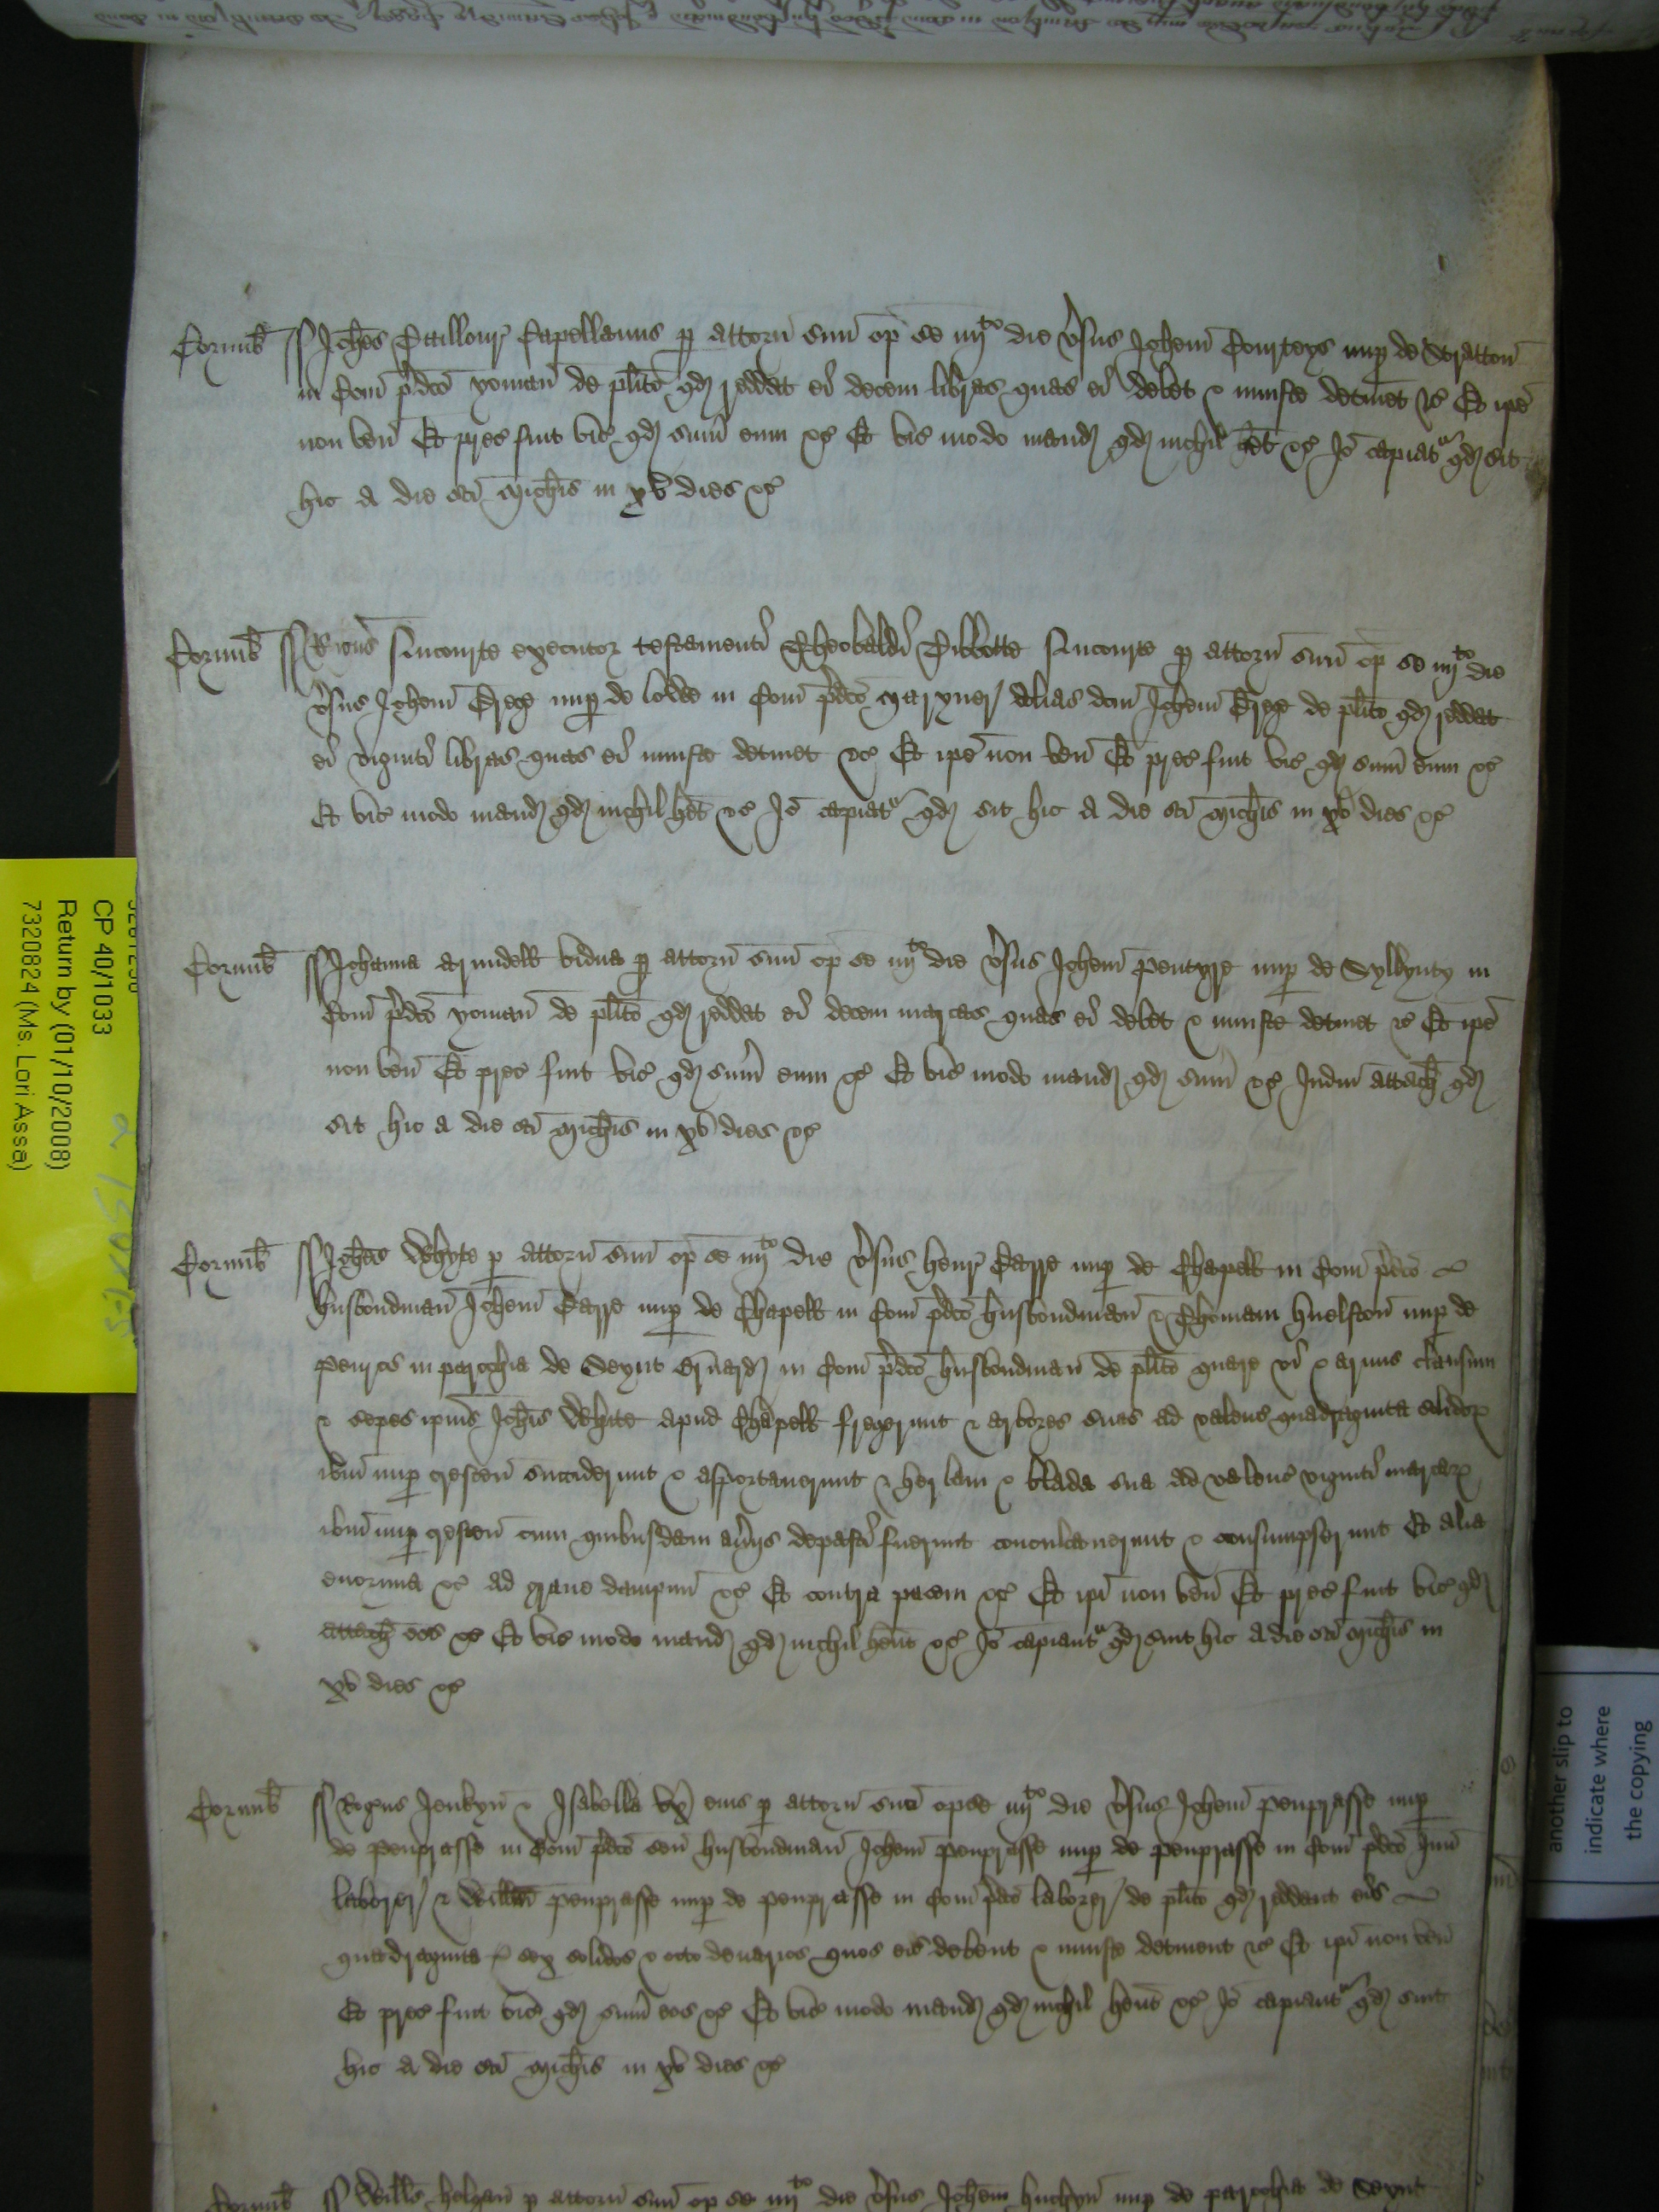 Cornub Joħes capellanus p attorn suu op se iiijto die vsus Joħem Courteys nup de Stratton
in Com pdco yoman de plito qd reddat ei decem libras quas ei debet & iniuste detinet &c Et ipe
non ven Et prec fuit vic qd sum eum &c Et vic modo mand qd nichil het &c Io capiatr qd sit
hic a die sci Michis in xv dies &c
Cornub Ricus Aucourte executor testamenti Theobaldi Aucourte p attorn suu op se iiijto die
vsus Joħem nup de in Com pdco maryner alias dcm Joħem de plito qd reddat
ei viginti libras quas ei iniuste detinet &c Et ipe non ven Et prec fuit vic qd sum eum &c
Et vic modo mand qd nichil het &c Io capiatr qd sit hic a die sci Michis in xv dies &c
Cornub Johanna Arundell vidua p attorn suu op se iiijto die vsus Joħem Pentyre nup de in
Com pdco yoman de plito qd reddat ei decem marcas quas ei debet & iniuste detinet &c Et ipe
non ven Et prec fuit vic qd sum eum &c Et vic modo mand qd sum &c Judm attach qd
sit hic a die sci Michis in xv dies &c
Cornub Joħes Whyte p attorn suu op se iiijto die vsus Henr nup de Chapell in Com pdco
husbondman Joħem nup de Chapell in Com pdco husbondman & Thomam nup de
Penros in parochia de Seynt in Com pdco husbondman de plito quare vi & armis clausum
& sepes ipius Joħis White apud Chapell fregerunt & arbores suas ad valenc quadraginta solidor
ibm nup crescen succiderunt & asportauerunt & herbam & blada sua ad valenc viginti marcar
ibm nup crescen cum quibusdam aũijs depasti fuerunt conculcauerunt & consumpserunt Et alia
enormia &c ad graue dampnu &c Et contra pacem &c Et ipi non ven Et prec fuit vic qd
attach eos &c Et vic modo mand qd nichil hent &c Io capiantr qd sint hic a die sci Michis in
xv dies &c
Cornub Rogus Jenkyn & Isabella vx eius p attorn suu op se iiijto die vsus Joħem Penprasse nup
de Penprasse in Com pdco sen husbondman Joħem Penprasse nup de Penprasse in Com pdco Jun
laborer & Willm Penprasse nup de Penprasse in Com pdco laborer de plito qd reddant eis
quadraginta & sex solidos & octo denarios quos eis debent & iniuste detinent &c Et ipi non ven
Et prec fuit vic qd sum eos &c Et vic modo mand qd nichil hent &c Io capiantr qd sint
hic a die sci Michis in xv dies &c
Cornub Willms p attorn suu op se iiijto die vsus Joħem nup de parochia de Seynt
CP 40/1033
Return by (01/10/2008)
7320824 (Ms. Lori Assa)
another slip to
indicate where
the copying